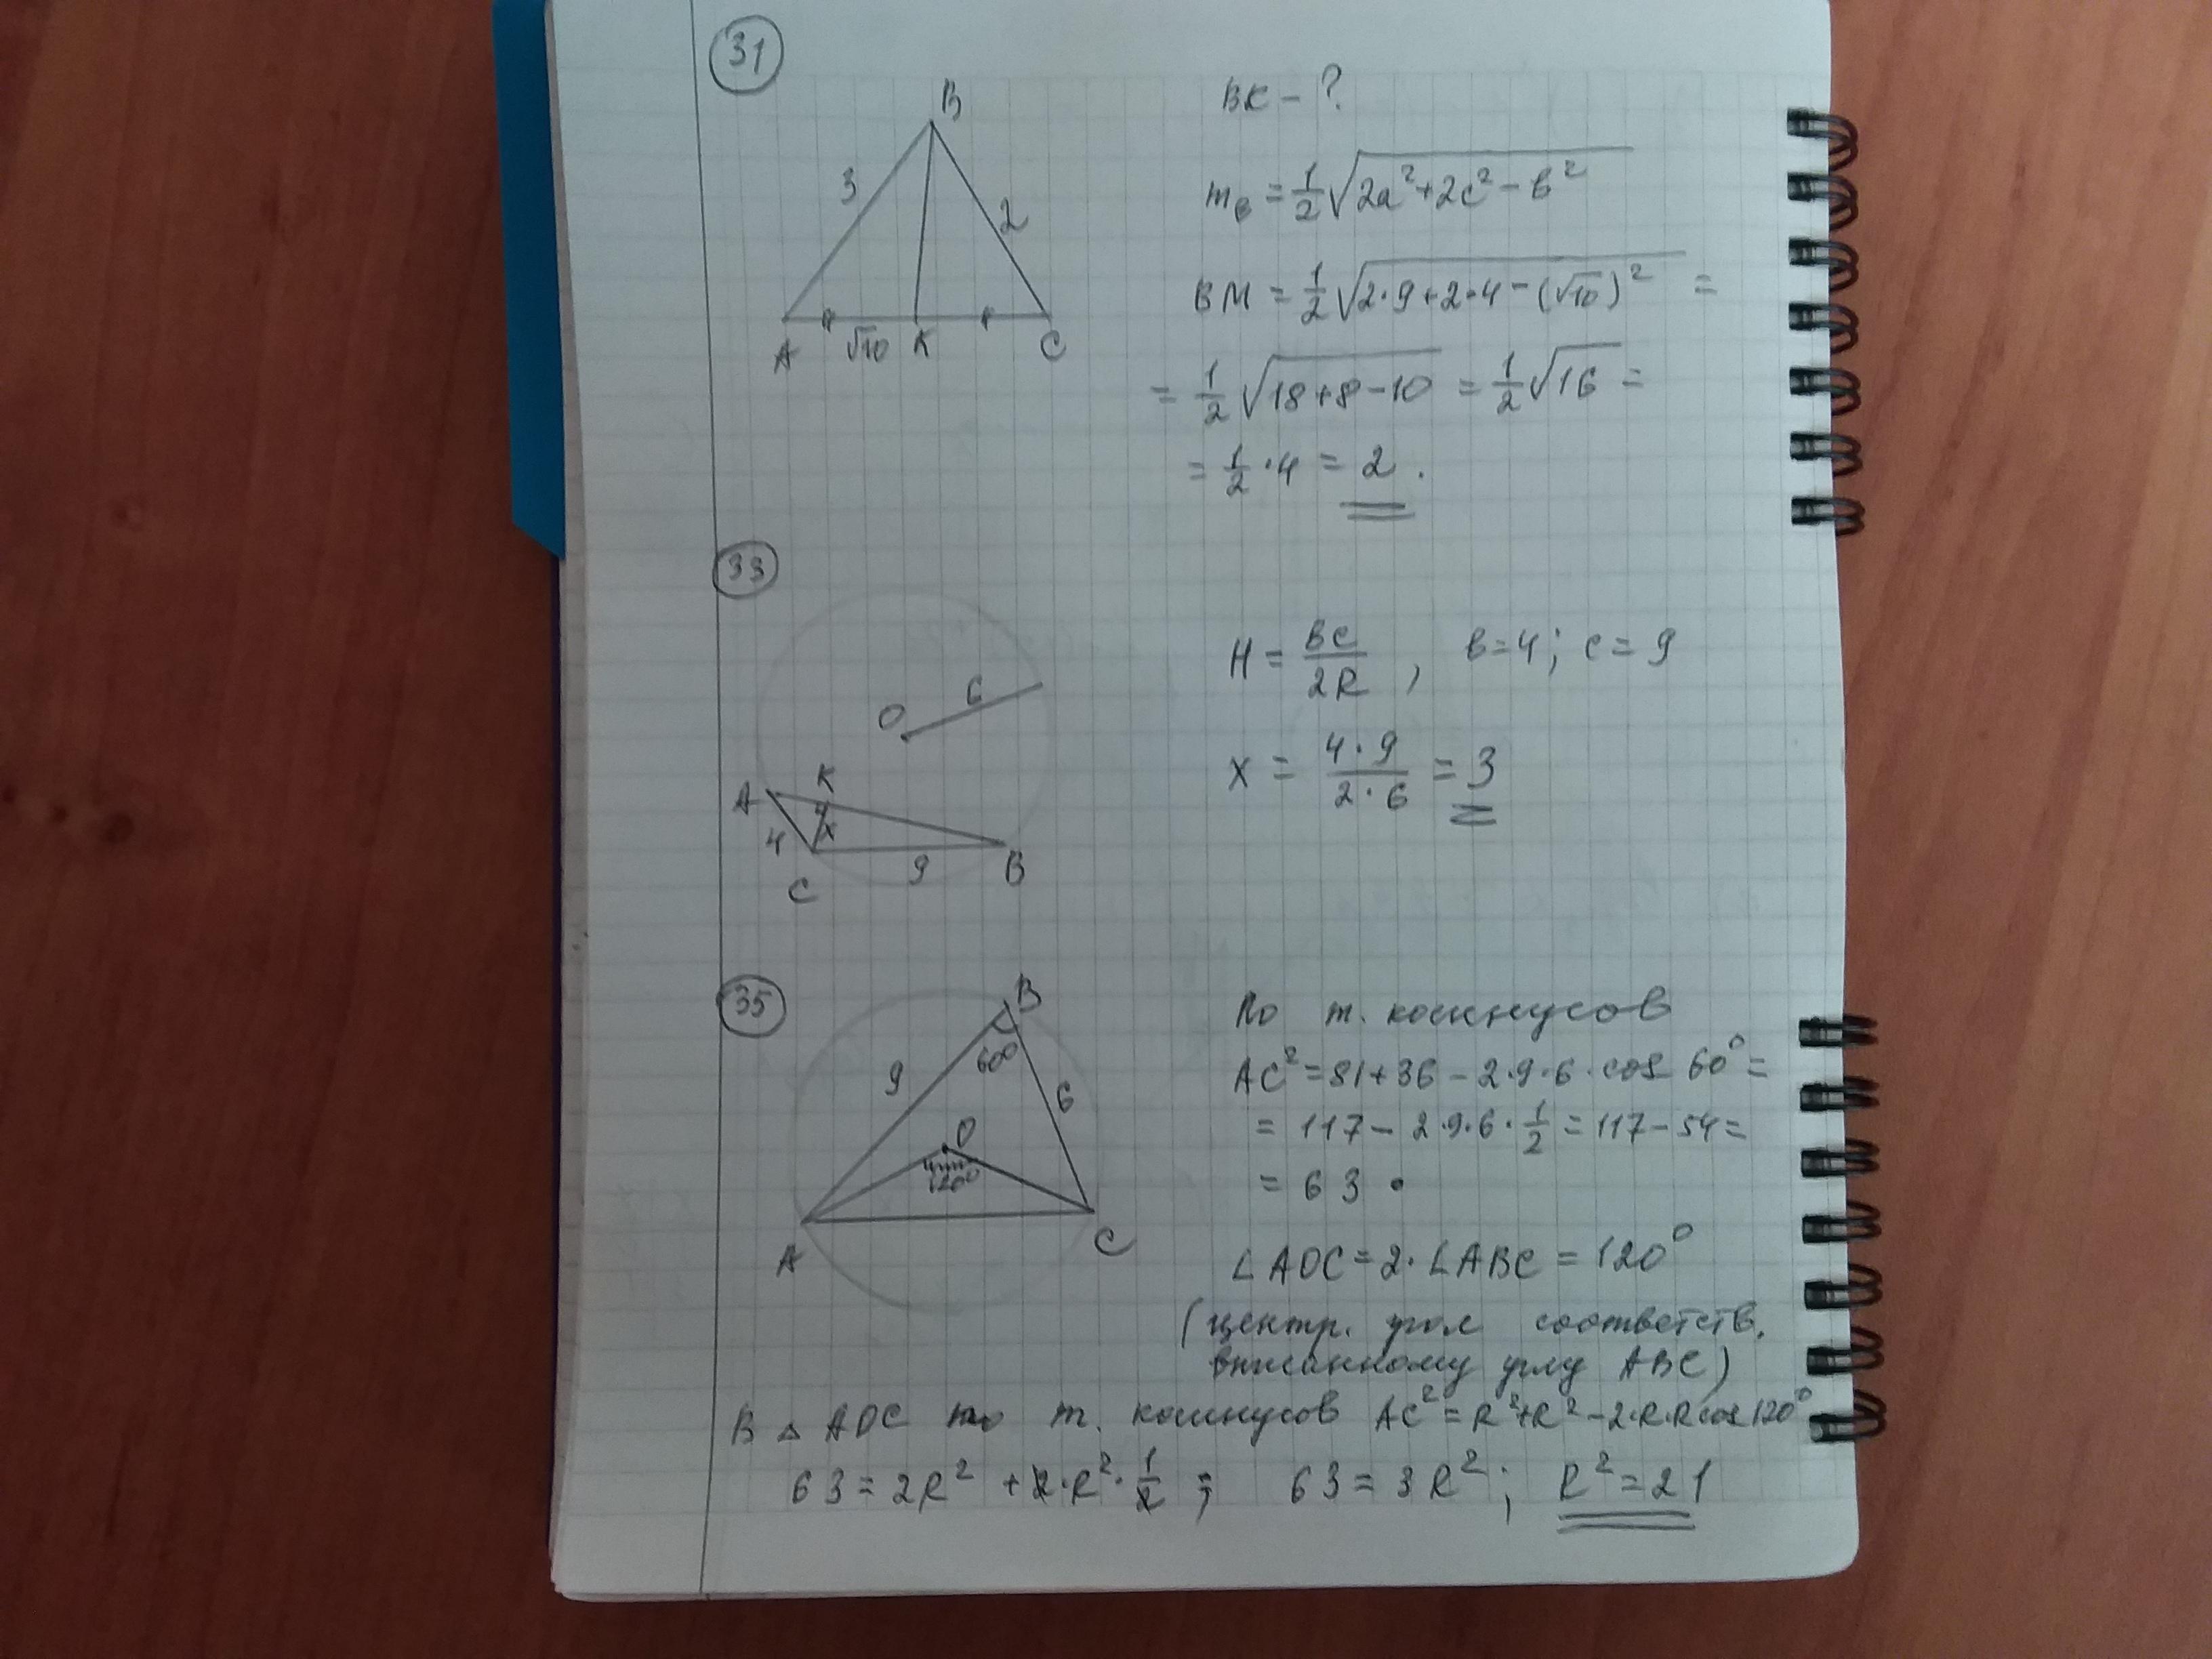 31
B
3
2
A
√10
K
C
BK - ?
m_B = 1/2 √(2a² + 2c² - b²)
BM = 1/2 √(2·9 + 2·4 - (√10)²) =
= 1/2 √(18 + 8 - 10) = 1/2 √16 =
= 1/2 · 4 = 2.
33
O
6
A
K
4
x
9
B
C
H = BC/2R, b = 4; c = 9
x = 4·9/2·6 = 3
35
B
60°
9
6
O
120°
A
C
По т. косинусов
AC² = 81 + 36 - 2·9·6·cos 60° =
= 117 - 2·9·6·1/2 = 117 - 54 =
= 63.
∠AOC = 2·∠ABC = 120°
(центр. угол соответств.
вписанному углу ABC)
В △ AOC по т. косинусов AC² = R² + R² - 2·R·R cos 120°
63 = 2R² + 2·R²·1/2; 63 = 3R²; R² = 21